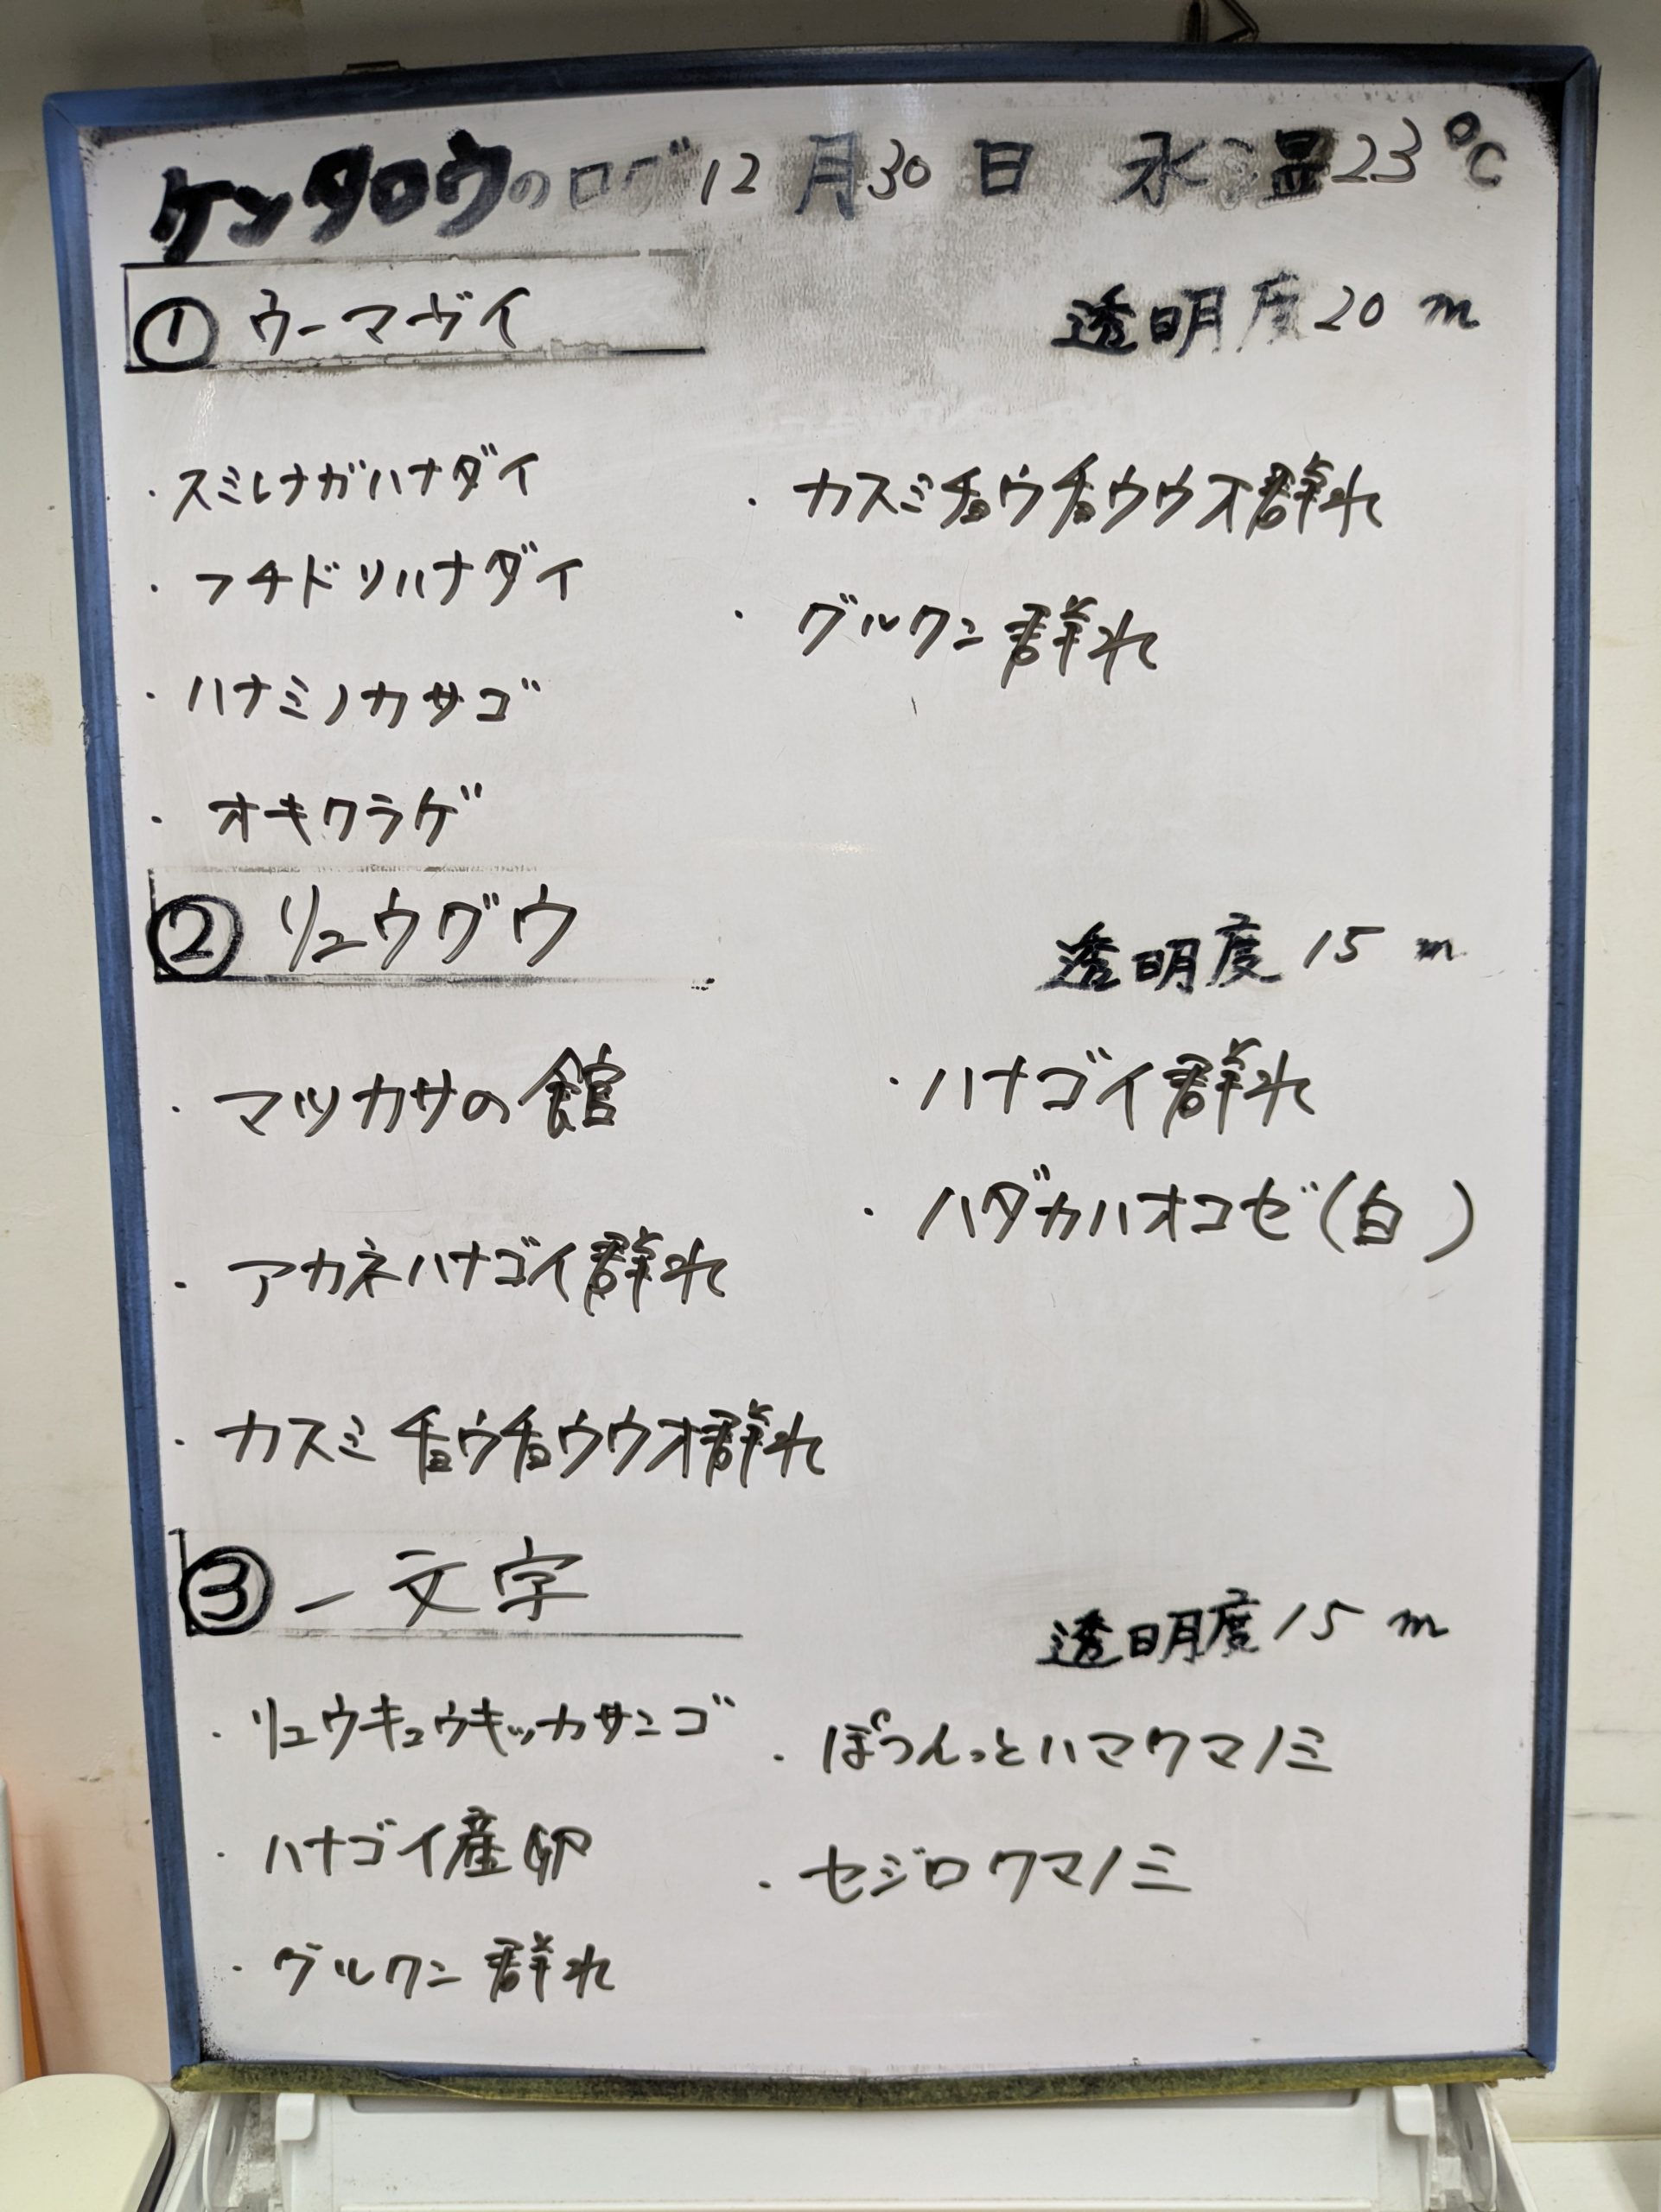 ケンタロウのログ 12月30日 水温23℃
① ウーマヴイ
透明度20m
・スミレナガハナダイ
・フチドリハナダイ
・ハナミノカサゴ
・オキクラゲ
・カスミチョウチョウウオ群れ
・グルクン群れ
② リュウグウ
透明度15m
・マツカサの館
・アカネハナゴイ群れ
・カスミチョウチョウウオ群れ
・ハナゴイ群れ
・ハダカハオコゼ(白)
③ 一文字
透明度15m
・リュウキュウキッカサンゴ
・ハナゴイ産卵
・グルクン群れ
・ぽつんっとハマクマノミ
・セジロクマノミ